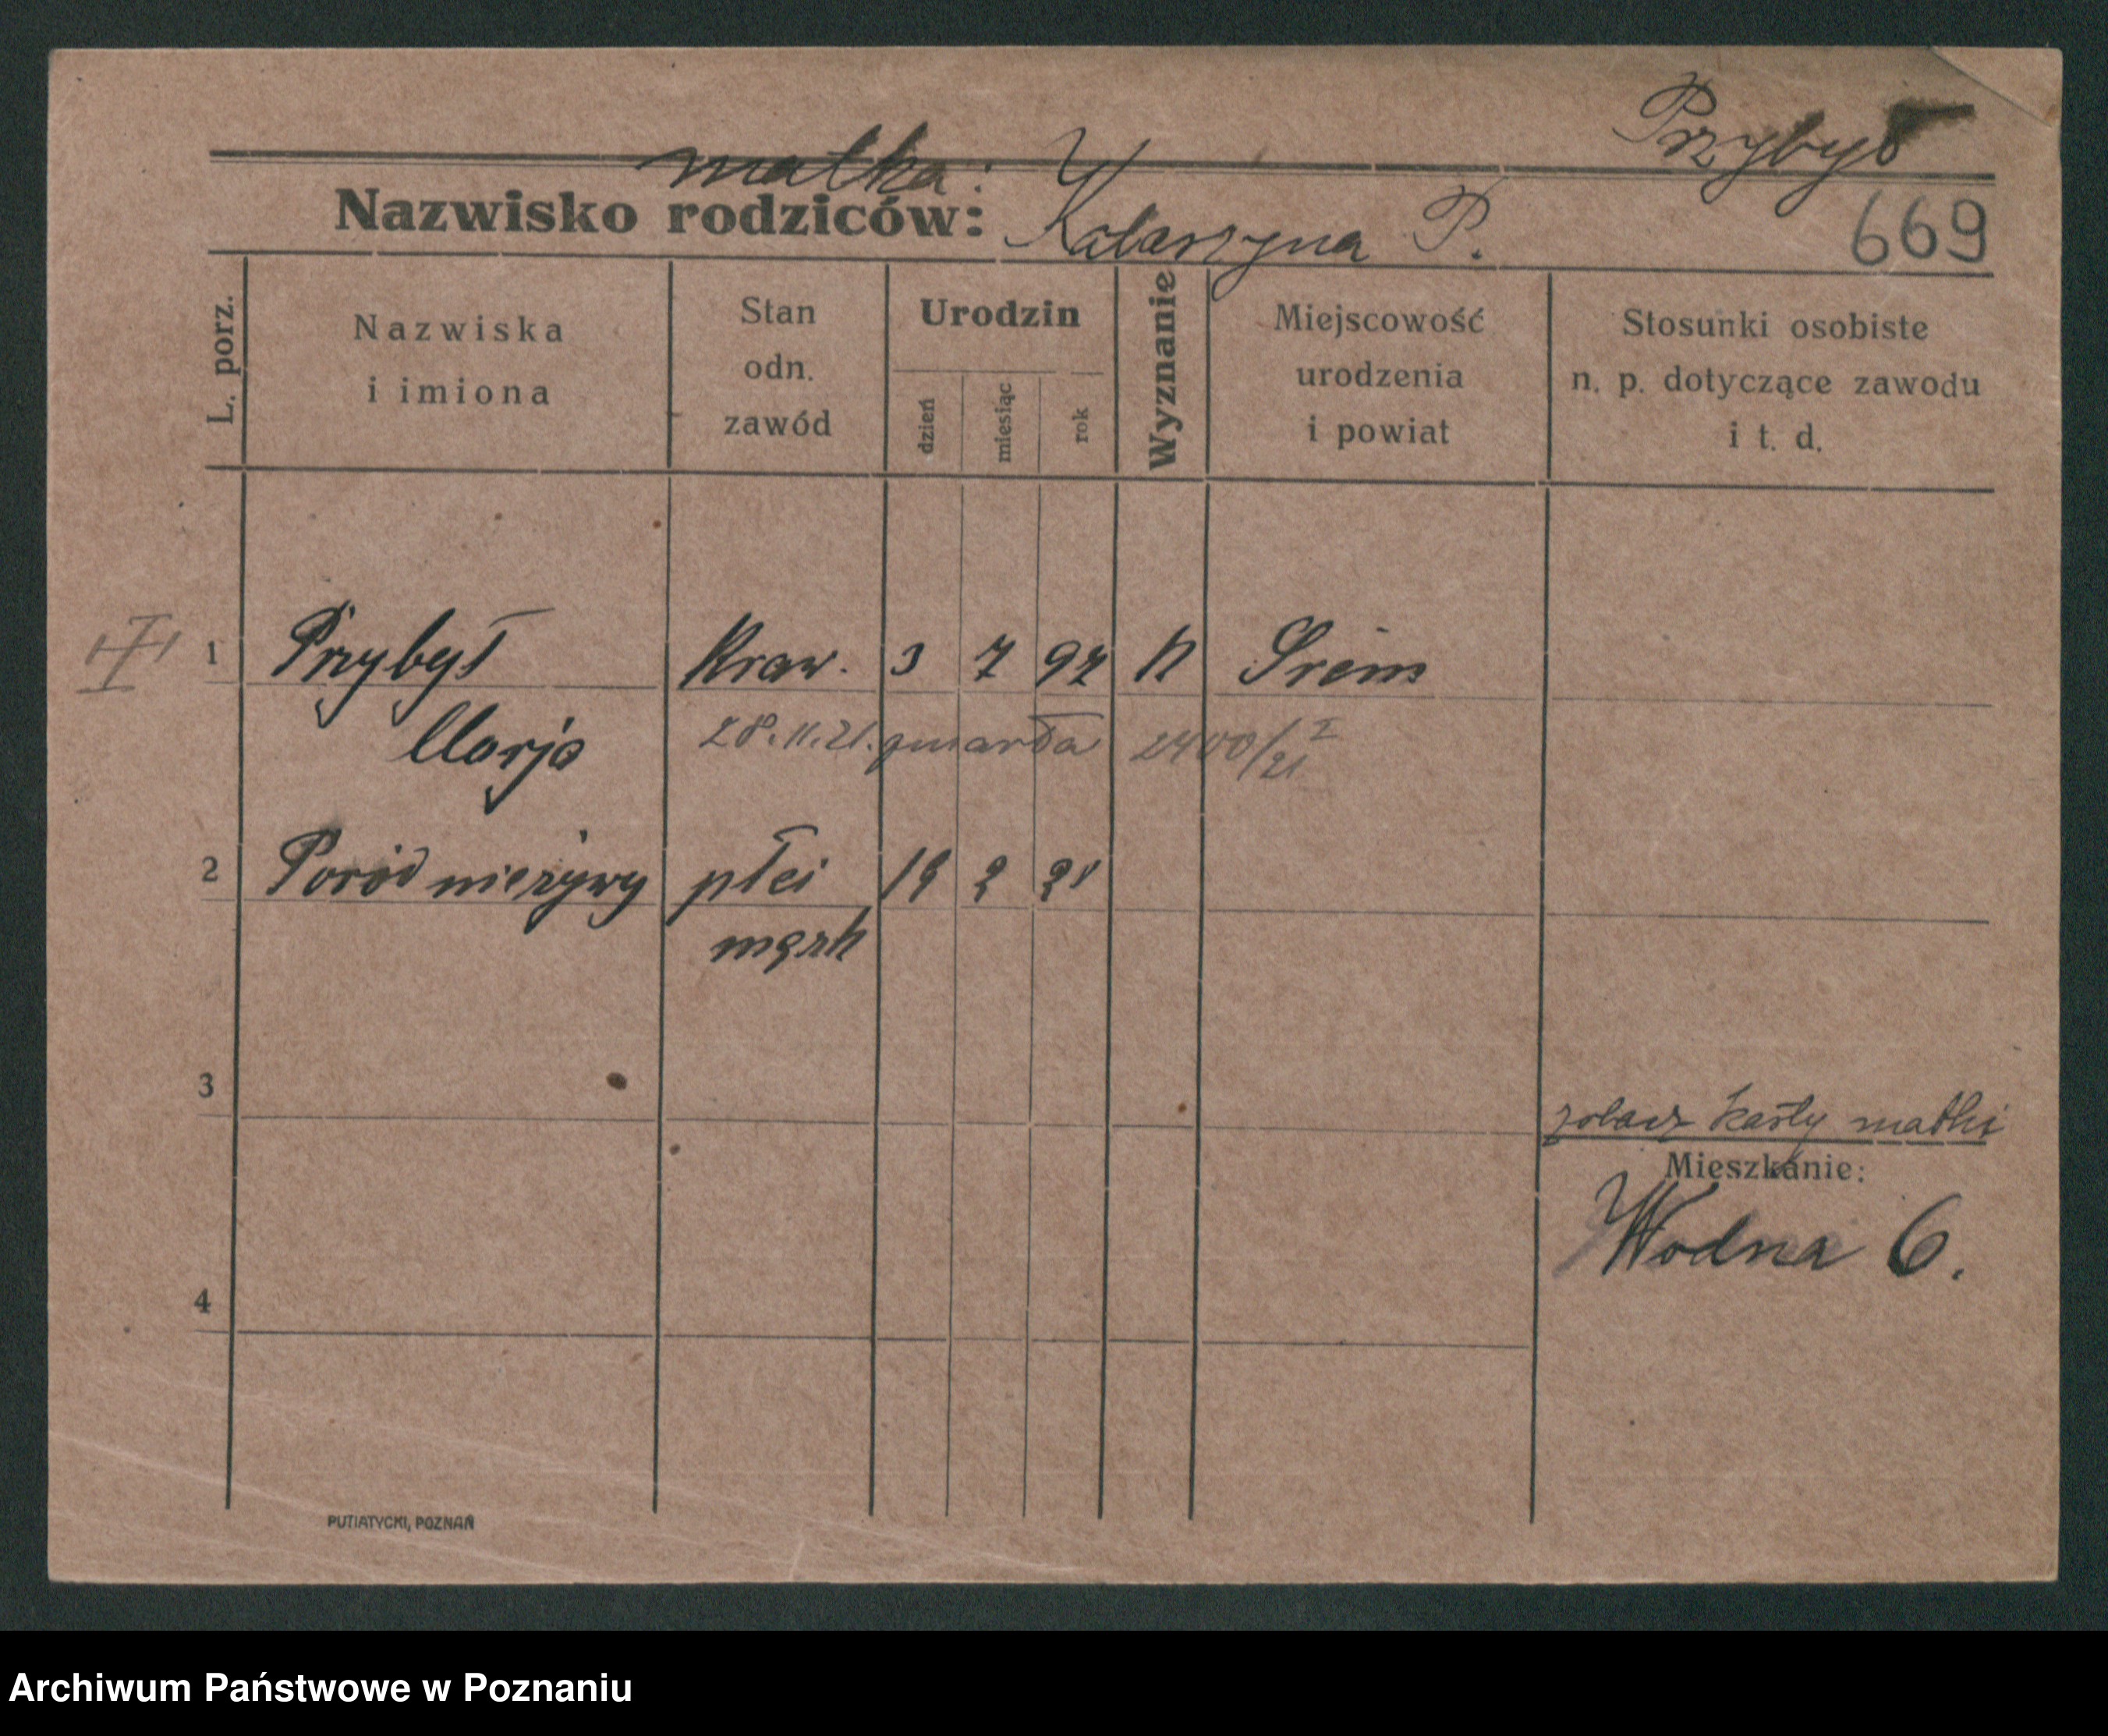 Przybył
matka:
Nazwisko rodziców: Katarzyna P.
669
L. porz.
Nazwiska
i imiona
Stan
odn.
zawód
Urodzin
dzień
miesiąc
rok
Wyznanie
Miejscowość
urodzenia
i powiat
Stosunki osobiste
n. p. dotyczące zawodu
i t. d.
1 Przybył Kraw. 3 7 97 k Śrem
Marja 28.11.21. zmarła 2400/21 I
2 Poród nieżywy płci 19 2 21
męsk
3
zobacz karty matki
Mieszkanie:
Wodna 6.
4
PUTIATYCKI, POZNAŃ
Archiwum Państwowe w Poznaniu